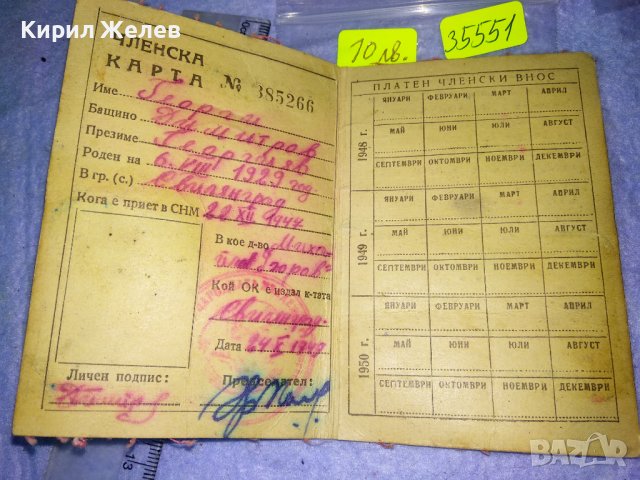 Кирил Желев
10 лв.
35551
ЧЛЕНСКА
КАРТА № 385266
Име Георги
Бащино Димитров
Презиме Георгиев
Роден на 6.VIII 1929 год.
В гр. (с.) Свиленград
Кога е приет в СНМ 20 XII 1944
В кое д-во
Кой ОК е издал к-тата
Свиленград.
Дата 24 I 1949
Личен подпис:
Председател:
ПЛАТЕН ЧЛЕНСКИ ВНОС
1948 г.
ЯНУАРИ ФЕВРУАРИ МАРТ АПРИЛ
МАЙ ЮНИ ЮЛИ АВГУСТ
СЕПТЕМВРИ ОКТОМВРИ НОЕМВРИ ДЕКЕМВРИ
1949 г.
ЯНУАРИ ФЕВРУАРИ МАРТ АПРИЛ
МАЙ ЮНИ ЮЛИ АВГУСТ
СЕПТЕМВРИ ОКТОМВРИ НОЕМВРИ ДЕКЕМВРИ
1950 г.
ЯНУАРИ ФЕВРУАРИ МАРТ АПРИЛ
МАЙ ЮНИ ЮЛИ АВГУСТ
СЕПТЕМВРИ ОКТОМВРИ НОЕМВРИ ДЕКЕМВРИ
BAZAR